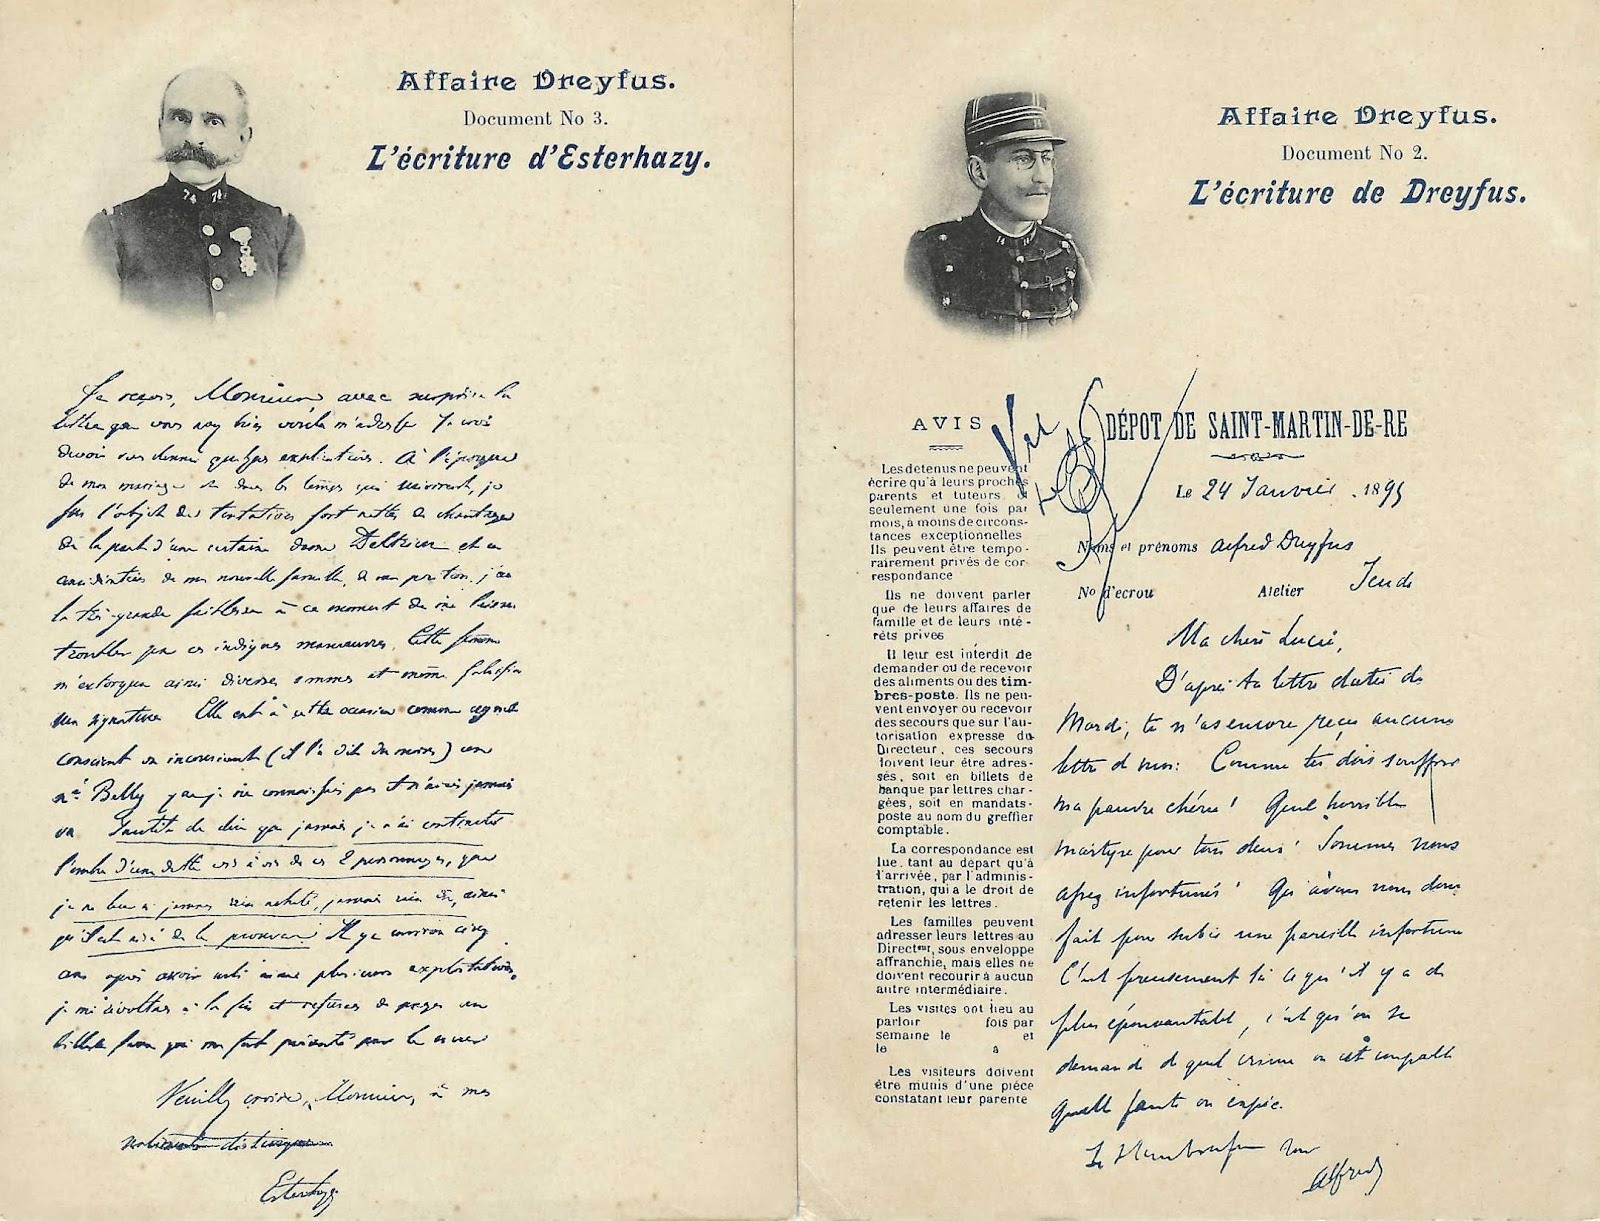 Affaire Dreyfus.
Document No 3.
L'écriture d'Esterhazy.
Je reçois, Monsieur avec surprise la
lettre que vous avez bien voulu m'adresser Je crois
devoir vous donner quelques explications. A l'époque
de mon mariage et dans les temps qui suivirent, je
fus l'objet de tentatives fort nettes de chantage
de la part d'une certaine dame et en
de ma nouvelle famille, de ma position, j'eu
la très grande faiblesse à ce moment de me laisser
troubler par ces indignes manœuvres. Cette femme
m'extorqua ainsi diverses sommes et même falsifia
ma signature Elle eut à cette occasion comme agent
conscient ou inconscient (il l'a dit du moins) un
Mr Belly que je ne connaissais pas et n'avais jamais
vu Inutile de dire que jamais je n'ai contracté
l'ombre d'une dette vis à vis de ces 2 personnages, que
je ne leur ai jamais rien acheté, jamais rien dû, ainsi
qu'il est aisé de le prouver. Il y a environ cinq
ans après avoir subi plusieurs exploitations,
je me révoltai à la fin et refusai de payer un
billet faux qui me fut présenté par le sieur
Veuillez croire, Monsieur, à mes
sentiments distingués
Esterhazy
Affaire Dreyfus.
Document No 2.
L'écriture de Dreyfus.
AVIS
Les detenus ne peuvent
écrire qu'à leurs proches
parents et tuteurs et
seulement une fois par
mois, a moins de circons-
tances exceptionnelles
Ils peuvent être tempo-
rairement privés de cor-
respondance
Ils ne doivent parler
que de leurs affaires de
famille et de leurs inté-
rêts privés
Il leur est interdit de
demander ou de recevoir
des aliments ou des tim-
bres-poste. Ils ne peu-
vent envoyer ou recevoir
des secours que sur l'au-
torisation expresse du
Directeur, ces secours
doivent leur être adres-
sés, soit en billets de
banque par lettres char-
gées, soit en mandats-
poste au nom du greffier
comptable.
La correspondance est
lue, tant au départ qu'à
l'arrivée, par l'adminis-
tration, qui a le droit de
retenir les lettres.
Les familles peuvent
adresser leurs lettres au
Directeur, sous enveloppe
affranchie, mais elles ne
doivent recourir à aucun
autre intermédiaire.
Les visites ont lieu au
parloir fois par
semaine le et
le à
Les visiteurs doivent
être munis d'une pièce
constatant leur parente
Vu
DÉPOT DE SAINT-MARTIN-DE-RE
Le 24 Janvier 1895
Noms et prénoms Alfred Dreyfus
No d'ecrou Atelier Jeudi
Ma chère Lucie,
D'après ta lettre datée de
Mardi, tu n'as encore reçu aucune
lettre de moi: Comme tu dois souffrir
ma pauvre chérie! Quel horrible
martyre pour tous deux! Sommes nous
assez infortunés! Qu'avons nous donc
fait pour subir une pareille infortune
C'est precisement là ce qu'il y a de
plus épouvantable, c'est qu'on se
demande de quel crime on est coupable
quelle faute on expie.
Alfred